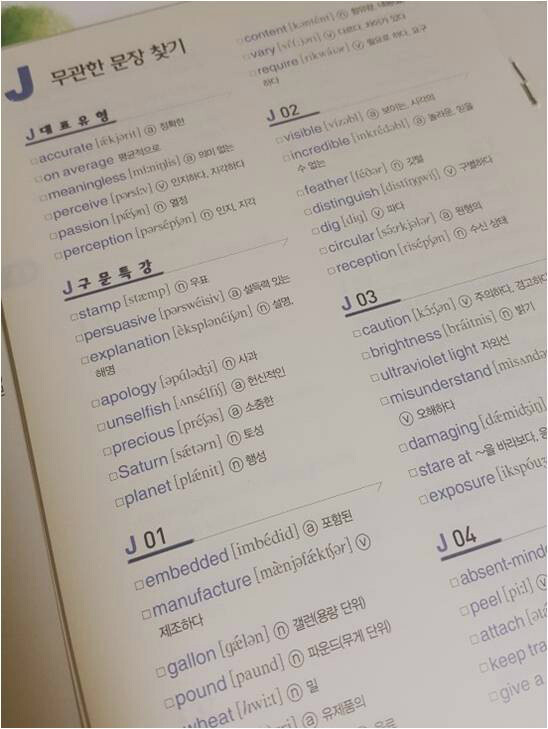 J 무관한 문장 찾기
J 대표유형
□accurate [ǽkjərit] ⓐ 정확한
□on average 평균적으로
□meaningless [míːniŋlis] ⓐ 의미 없는
□perceive [pərsíːv] ⓥ 인지하다, 지각하다
□passion [pǽʃən] ⓝ 열정
□perception [pərsépʃən] ⓝ 인지, 지각
J 구문특강
□stamp [stæmp] ⓝ 우표
□persuasive [pərswéisiv] ⓐ 설득력 있는
□explanation [èksplənéiʃən] ⓝ 설명,
해명
□apology [əpálədʒi] ⓝ 사과
□unselfish [ʌnsélfiʃ] ⓐ 헌신적인
□precious [préʃəs] ⓐ 소중한
□Saturn [sǽtərn] ⓝ 토성
□planet [plǽnit] ⓝ 행성
J 01
□embedded [imbédid] ⓐ 포함된
□manufacture [mæ̀njəfǽktʃər] ⓥ
제조하다
□gallon [gǽlən] ⓝ 갤런(용량 단위)
□pound [paund] ⓝ 파운드(무게 단위)
wheat [hwiːt] ⓝ 밀
ⓐ 유제품의
□content [kəntént] ⓝ
□vary [vɛ́ːəri] ⓥ 다르다, 차이가 있다
□require [rikwáiər] ⓥ 필요로 하다, 요구
하다
J 02
□visible [vízəbl] ⓐ 보이는, 시각의
□incredible [inkrédəbl] ⓐ 놀라운, 믿을
수 없는
□feather [féðər] ⓝ 깃털
□distinguish [distíŋgwiʃ] ⓥ 구별하다
□dig [dig] ⓥ 파다
□circular [sə́ːrkjələr] ⓐ 원형의
□reception [risépʃən] ⓝ 수신 상태
J 03
□caution [kɔ́ːʃən] ⓥ 주의하다, 경고하다
□brightness [bráitnis] ⓝ 밝기
□ultraviolet light 자외선
□misunderstand
ⓥ 오해하다
□damaging [dǽmidʒiŋ]
□stare at ~을 바라보다,
□exposure
J 04
□absent-minde
□peel [piːl] ⓥ
□attach
□keep tra
□give a